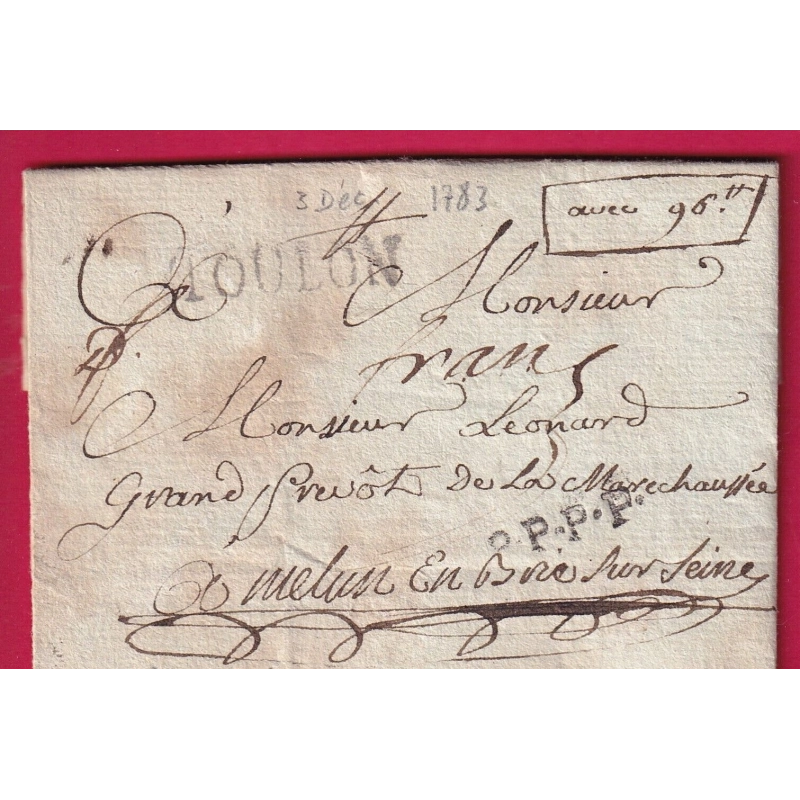 3 Déc 1783
avec 96.tt
TOULON
A Monsieur
franc
Monsieur Leonard
Grand Prevôt de La Marechaussée
P.P.P.P.
A melun En Brie sur seine